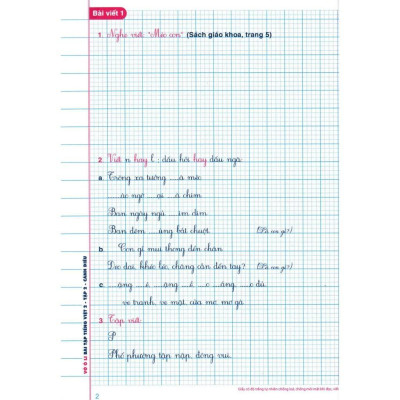 Bài viết 1
1 Nghe viết: "Mèo con" (Sách giáo khoa, trang 5)
2 Viết n hay l; dấu hỏi hay dấu ngã:
a Trông xa tưởng __à mèo
Ban ngày ngủ __im dim
Ban đêm __ùng bắt chuột. (Là con gì?)
b Con gì mũi thong đến chân
Deo dai, khéo léo, chẳng cần đến tay? (Là con gì?)
c
vẽ tranh, vẽ mặt của mẹ mẹ gà.
3 Tập viết:
P
Phố phường tấp nập, đông vui.
VỞ Ô LI BÀI TẬP TIẾNG VIỆT 2 - TẬP 2 - CÁNH DIỀU
2